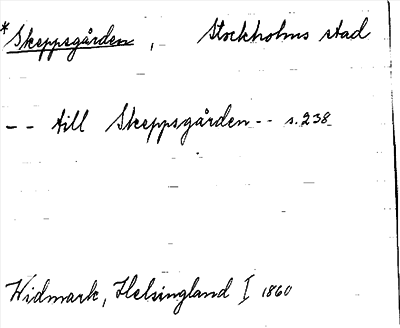 *Skeppsgården, Stockholms stad
-- till Skeppsgården -- s. 238
Widmark, Helsingland I 1860